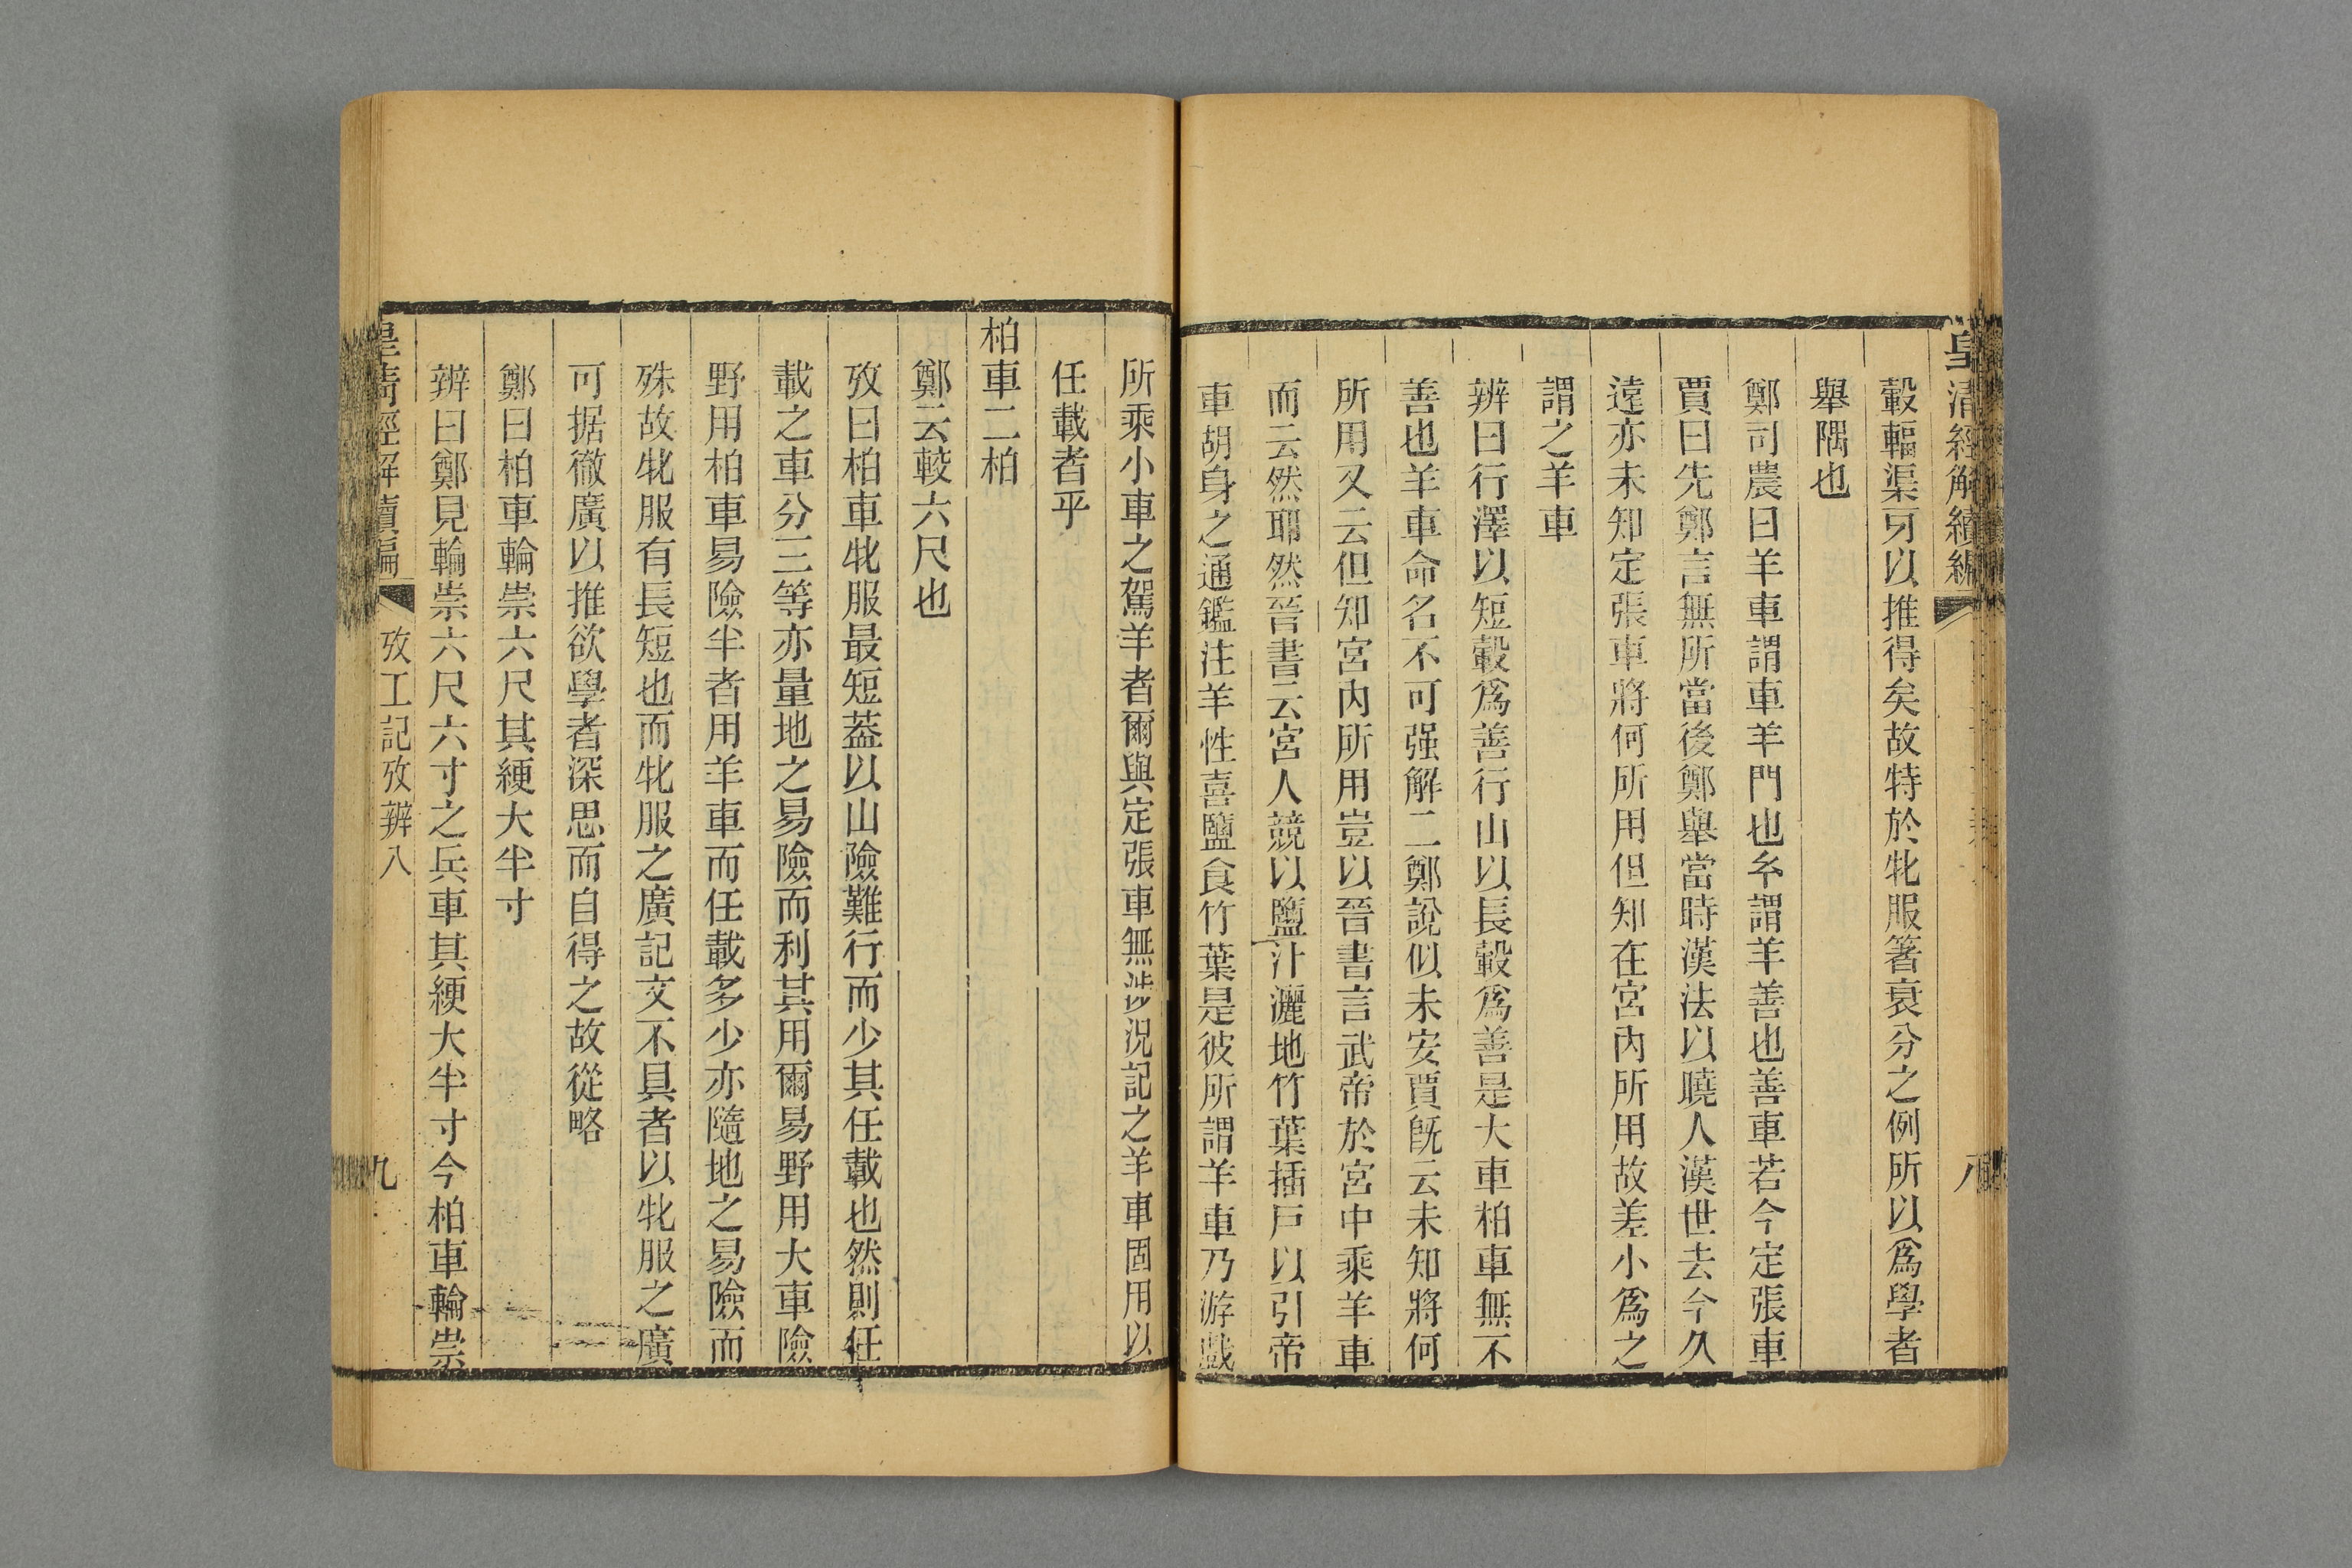 皇清經解續編
八
轂輻渠牙以推得矣故特於牝服箸衰分之例所以爲學者
舉隅也
鄭司農曰羊車謂車羊門也玄謂羊善也善車若今定張車
賈曰先鄭言無所當後鄭舉當時漢法以曉人漢世去今久
遠亦未知定張車將何所用但知在宮內所用故差小爲之
謂之羊車
辨曰行澤以短轂爲善行山以長轂爲善是大車柏車無不
善也羊車命名不可强解二鄭說似未安賈旣云未知將何
所用又云但知宮內所用豈以晉書言武帝於宮中乘羊車
而云然耶然晉書云宮人競以鹽汁灑地竹葉插戸以引帝
車胡身之通鑑注羊性喜鹽食竹葉是彼所謂羊車乃游戲
所乘小車之駕羊者爾與定張車無涉況記之羊車固用以
任載者乎
柏車二柏
鄭云較六尺也
攷曰柏車牝服最短葢以山險難行而少其任載也然則任
載之車分三等亦量地之易險而利其用爾易野用大車險
野用柏車易險半者用羊車而任載多少亦隨地之易險而
殊故牝服有長短也而牝服之廣記文不具者以牝服之廣
可据徹廣以推欲學者深思而自得之故從略
鄭曰柏車輪崇六尺其綆大半寸
辨曰鄭見輪崇六尺六寸之兵車其綆大半寸今柏車輪崇
皇清經解續編
攷工記攷辨八
九